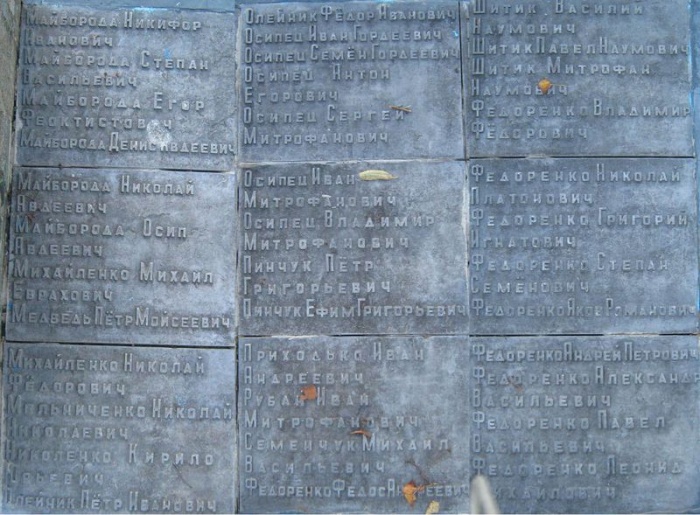 Майборода Никифор
Иванович
Майборода Степан
Васильевич
Майборода Егор
Феоктистович
Майборода Денис Авдеевич
Майборода Николай
Авдеевич
Майборода Осип
Авдеевич
Михайленко Михаил
Евграхович
Медведь Пётр Моисеевич
Михайленко Николай
Фёдорович
Мельниченко Николай
Николаевич
Николенко Кирило
Юрьевич
Олейник Пётр Иванович
Олейник Фёдор Иванович
Осипец Иван Гордеевич
Осипец Семён Гордеевич
Осипец Антон
Егорович
Осипец Сергей
Митрофанович
Осипец Иван
Митрофанович
Осипец Владимир
Митрофанович
Пинчук Пётр
Григорьевич
Пинчук Ефим Григорьевич
Приходько Иван
Андреевич
Рубан Иван
Митрофанович
Семенчук Михаил
Васильевич
Федоренко Федос Андреевич
Шитик Василий
Наумович
Шитик Павел Наумович
Шитик Митрофан
Наумович
Федоренко Владимир
Фёдорович
Федоренко Николай
Платонович
Федоренко Григорий
Игнатович
Федоренко Степан
Семенович
Федоренко Яков Романович
Федоренко Андрей Петрович
Федоренко Александр
Васильевич
Федоренко Павел
Васильевич
Федоренко Леонид
Михайлович